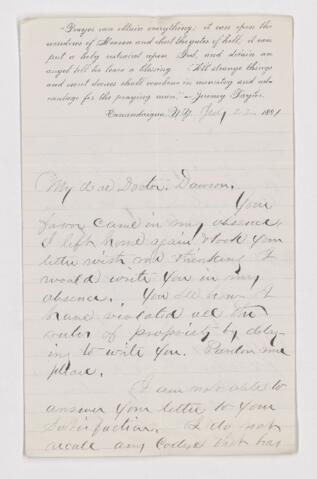 "Prayer can obtain everything; it can open the
windows of Heaven and shut the gates of hell; it can
put a holy restraint upon God, and detain an
angel till he leave a blessing." "All strange things
and secret desires shall combine in ministry and ad-
vantage for the praying man." — Jeremy Taylor.
Canandaigua, N.Y. 22 1891
My dear Doctor. Dawson,
Your
favor came in my absence
I left home again & took your
letter with me thinking I
would write you in my
absence. You see how I
have violated all the
rules of propriety by delay-
ing to write you. Pardon me
please.
I am not able to
answer your letter to your
satisfaction. I do not
recall any College that has